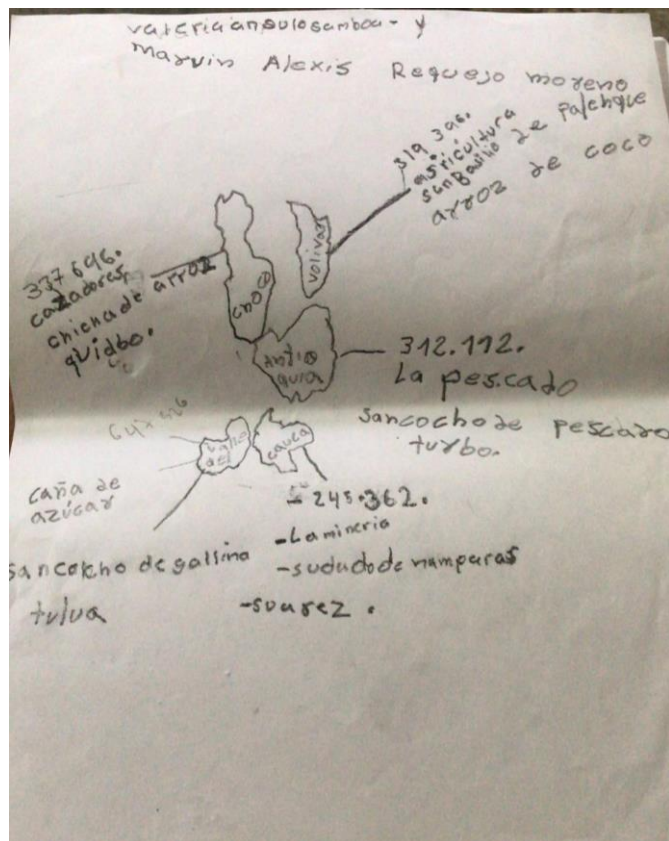 valeria angulo gamboa - y
Marvin Alexis Requejo moreno
319 396.
agricultura
san Basilio de palenque
arroz de coco
volivar
337 646.
cazadores,
chicha de arroz
quidbo.
choco
Antio
quia
312.112.
La pescado
sancocho de pescado
turbo.
647 526
valle
del
cauca
caña de
azúcar
sancolcho de gallina
tulua
- 245.362.
- La mineria
- sudado de
-suarez.